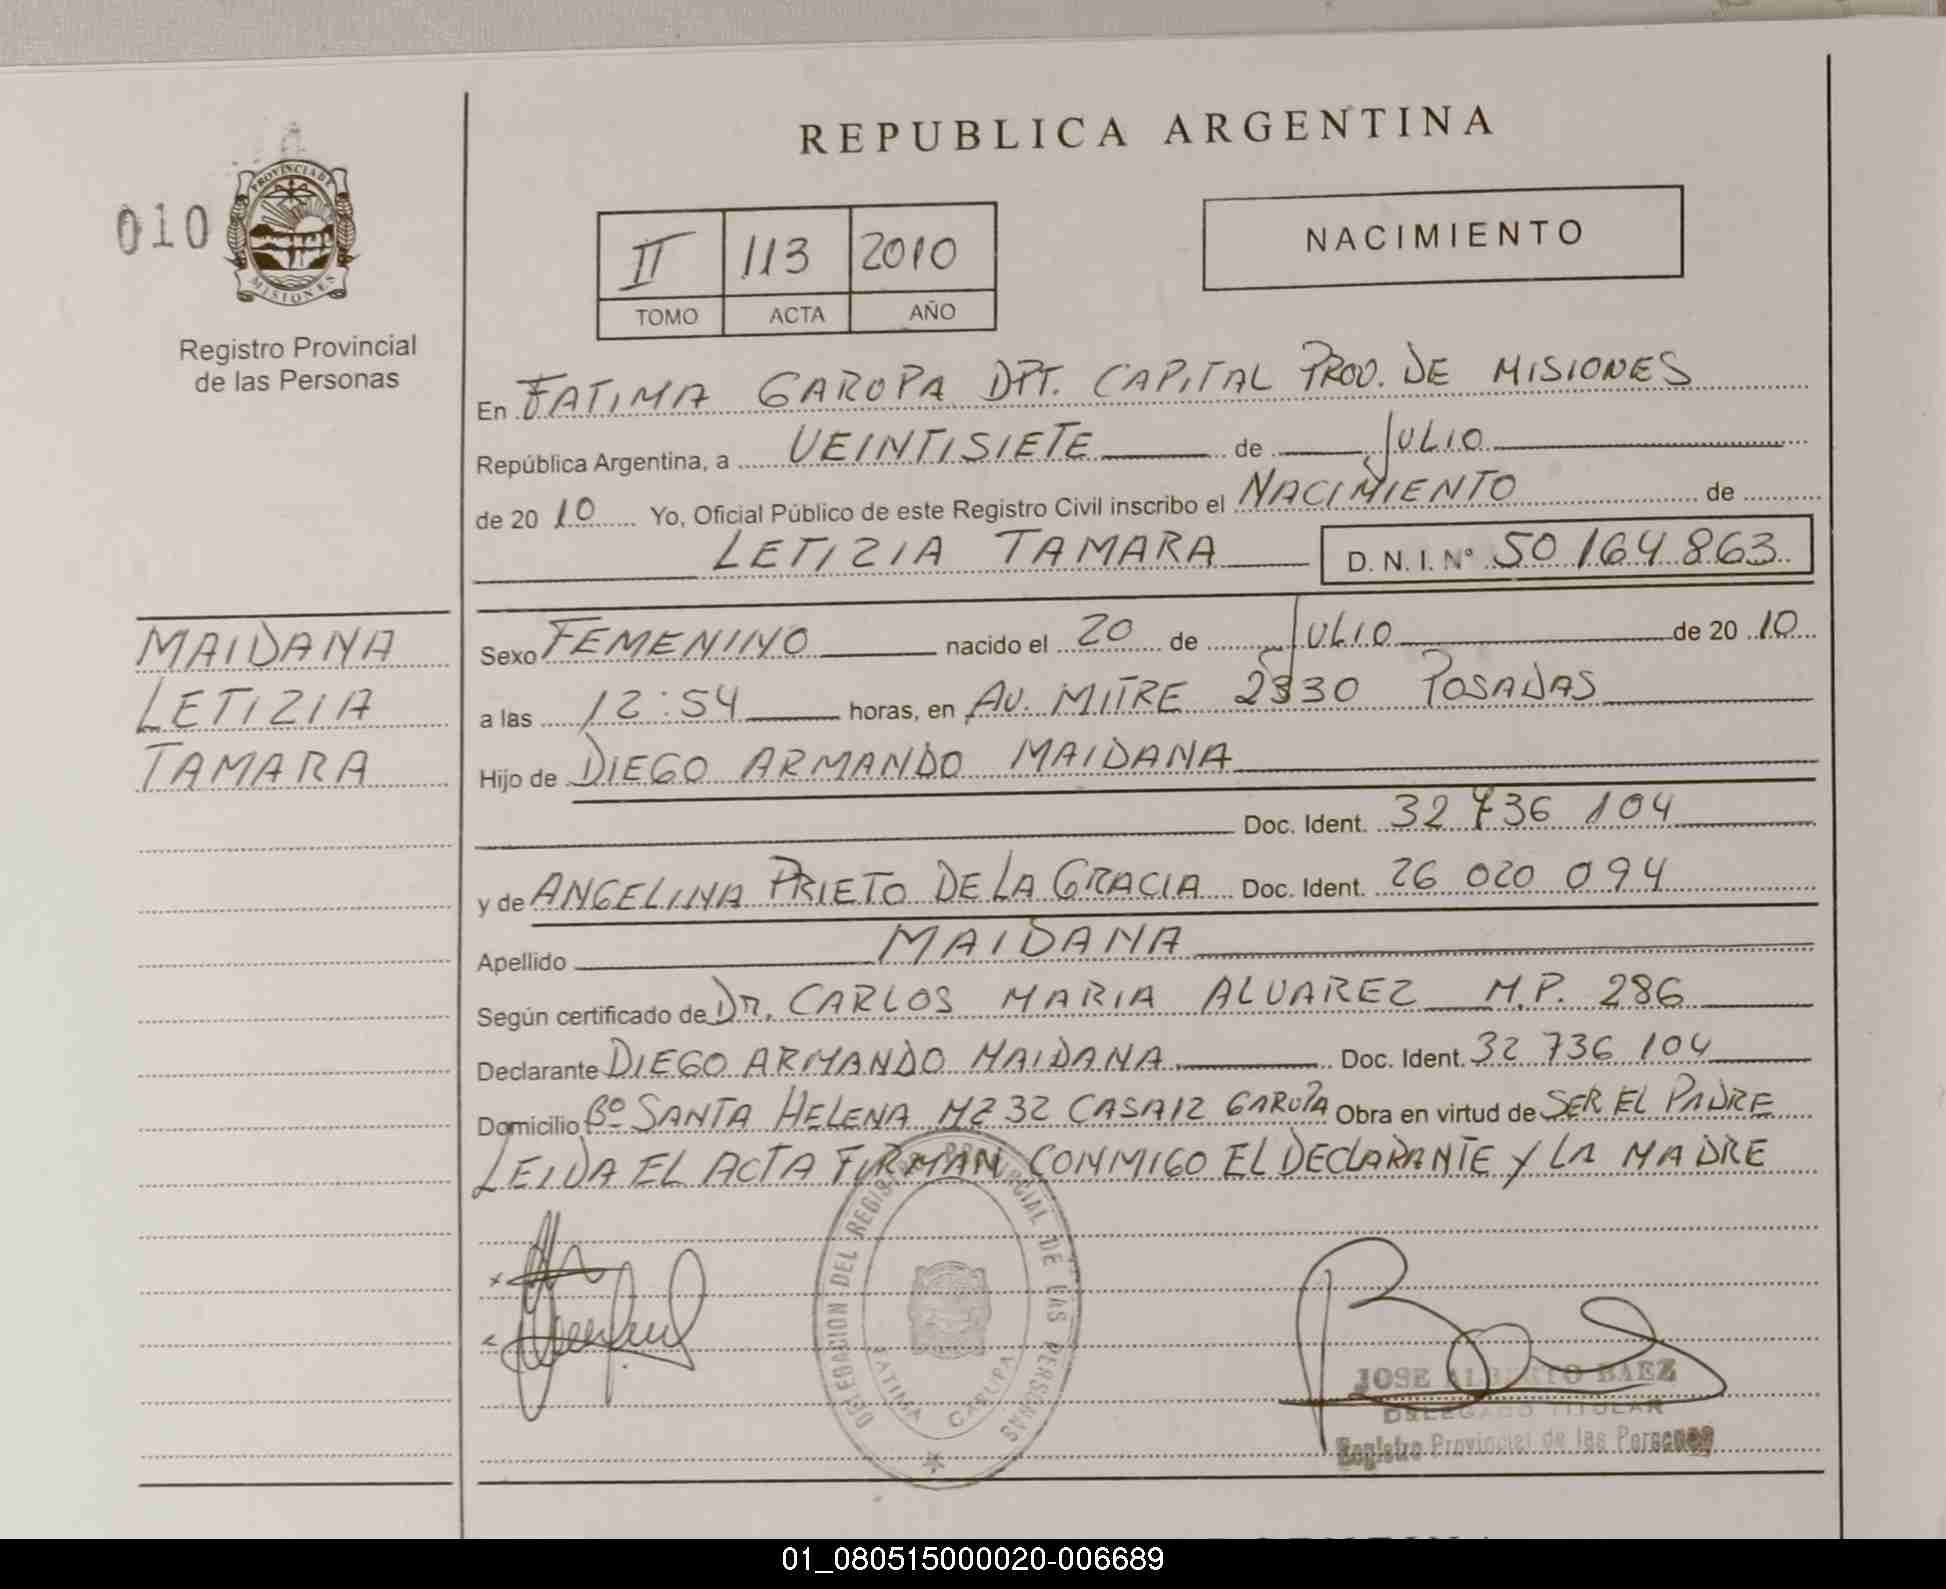 REPUBLICA ARGENTINA
010
PROVINCIA DE
MISIONES
Registro Provincial
de las Personas
II 113 2010
TOMO ACTA AÑO
NACIMIENTO
En FATIMA GARUPA DPT. CAPITAL PROV. DE MISIONES
República Argentina, a VEINTISIETE de JULIO
de 20 10 Yo, Oficial Público de este Registro Civil inscribo el NACIMIENTO de
LETIZIA TAMARA D. N. I. Nº 50 164 863
MAIDANA
LETIZIA
TAMARA
Sexo FEMENINO nacido el 20 de JULIO de 20 10
a las 12:54 horas, en AV. MITRE 2330 POSADAS
Hijo de DIEGO ARMANDO MAIDANA
Doc. Ident. 32 736 104
y de ANGELINA PRIETO DE LA GRACIA Doc. Ident. 26 020 094
Apellido MAIDANA
Según certificado de DR. CARLOS MARIA ALVAREZ M.P. 286
Declarante DIEGO ARMANDO MAIDANA Doc. Ident. 32 736 104
Domicilio Bº SANTA HELENA MZ 32 CASA 12 GARUPA Obra en virtud de SER EL PADRE
LEIDA EL ACTA FIRMAN CONMIGO EL DECLARANTE Y LA MADRE
DELEGACION DEL REGISTRO PROVINCIAL DE LAS PERSONAS
FATIMA GARUPA
JOSE ALBERTO BAEZ
DELEGADO TITULAR
Registro Provincial de las Personas
01_080515000020-006689